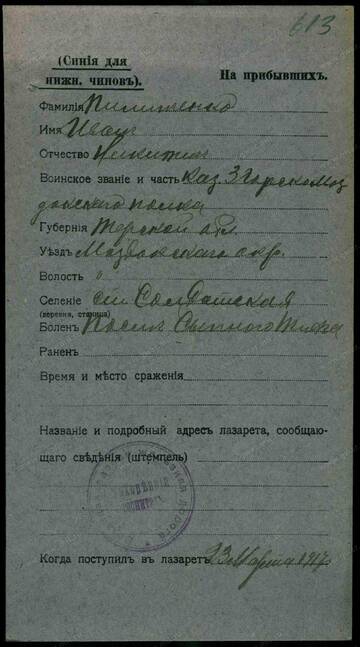 613
(Синія для
нижн. чиновъ).
На прибывшихъ.
Фамилія Пилипенко
Имя Иванъ
Отчество Никитин
Воинское званіе и часть Каз. 3 Горско Моз
докского полка
Губернія Терской обл
Уѣздъ Моздокского окр.
Волость "
Селеніе ст Солдатская
(деревня, станица)
Боленъ После Сыпного Тифа
Раненъ
Время и мѣсто сраженія
Названіе и подробный адресъ лазарета, сообщаю-
щаго свѣдѣнія (штемпель)
Когда поступилъ въ лазаретъ 23 Марта 1917